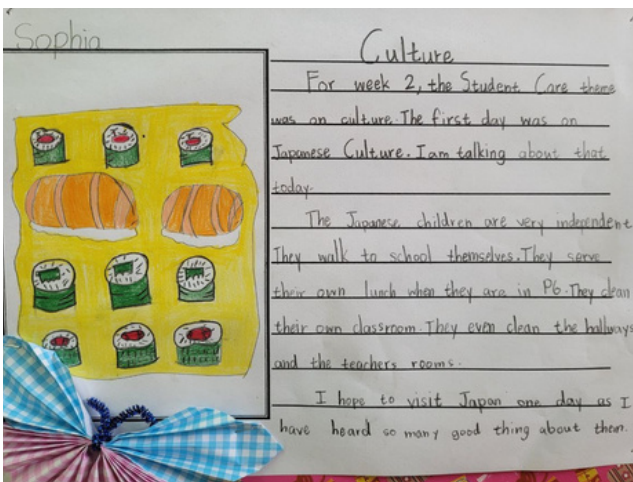 Sophia
Culture
For week 2, the Student Care theme
was on culture. The first day was on
Japanese Culture. I am talking about that
today.
The Japanese children are very independent
They walk to school themselves. They serve
their own lunch when they are in P6. They clean
their own classroom. They even clean the hallways
and the teachers rooms.
I hope to visit Japan one day as I
have heard so many good thing about them.